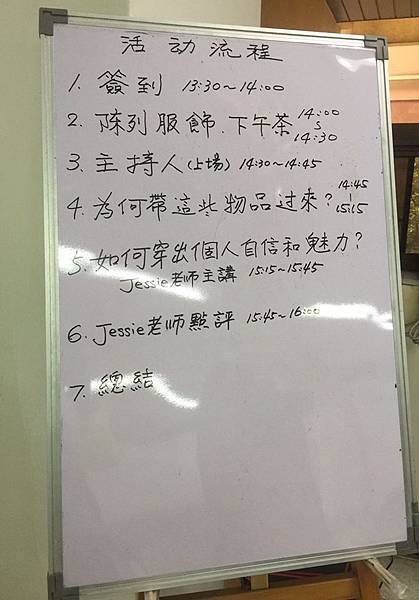 活动流程
1. 簽到 13:30~14:00
2. 陈列服飾.下午茶 14:00 ~ 14:30
3. 主持人(上場) 14:30~14:45
4. 為何帶這些物品过來? 14:45 - 15:15
5. 如何穿出個人自信和魅力?
Jessie老师主講 15:15~15:45
6. Jessie老师點評 15:45~16:00
7. 總結